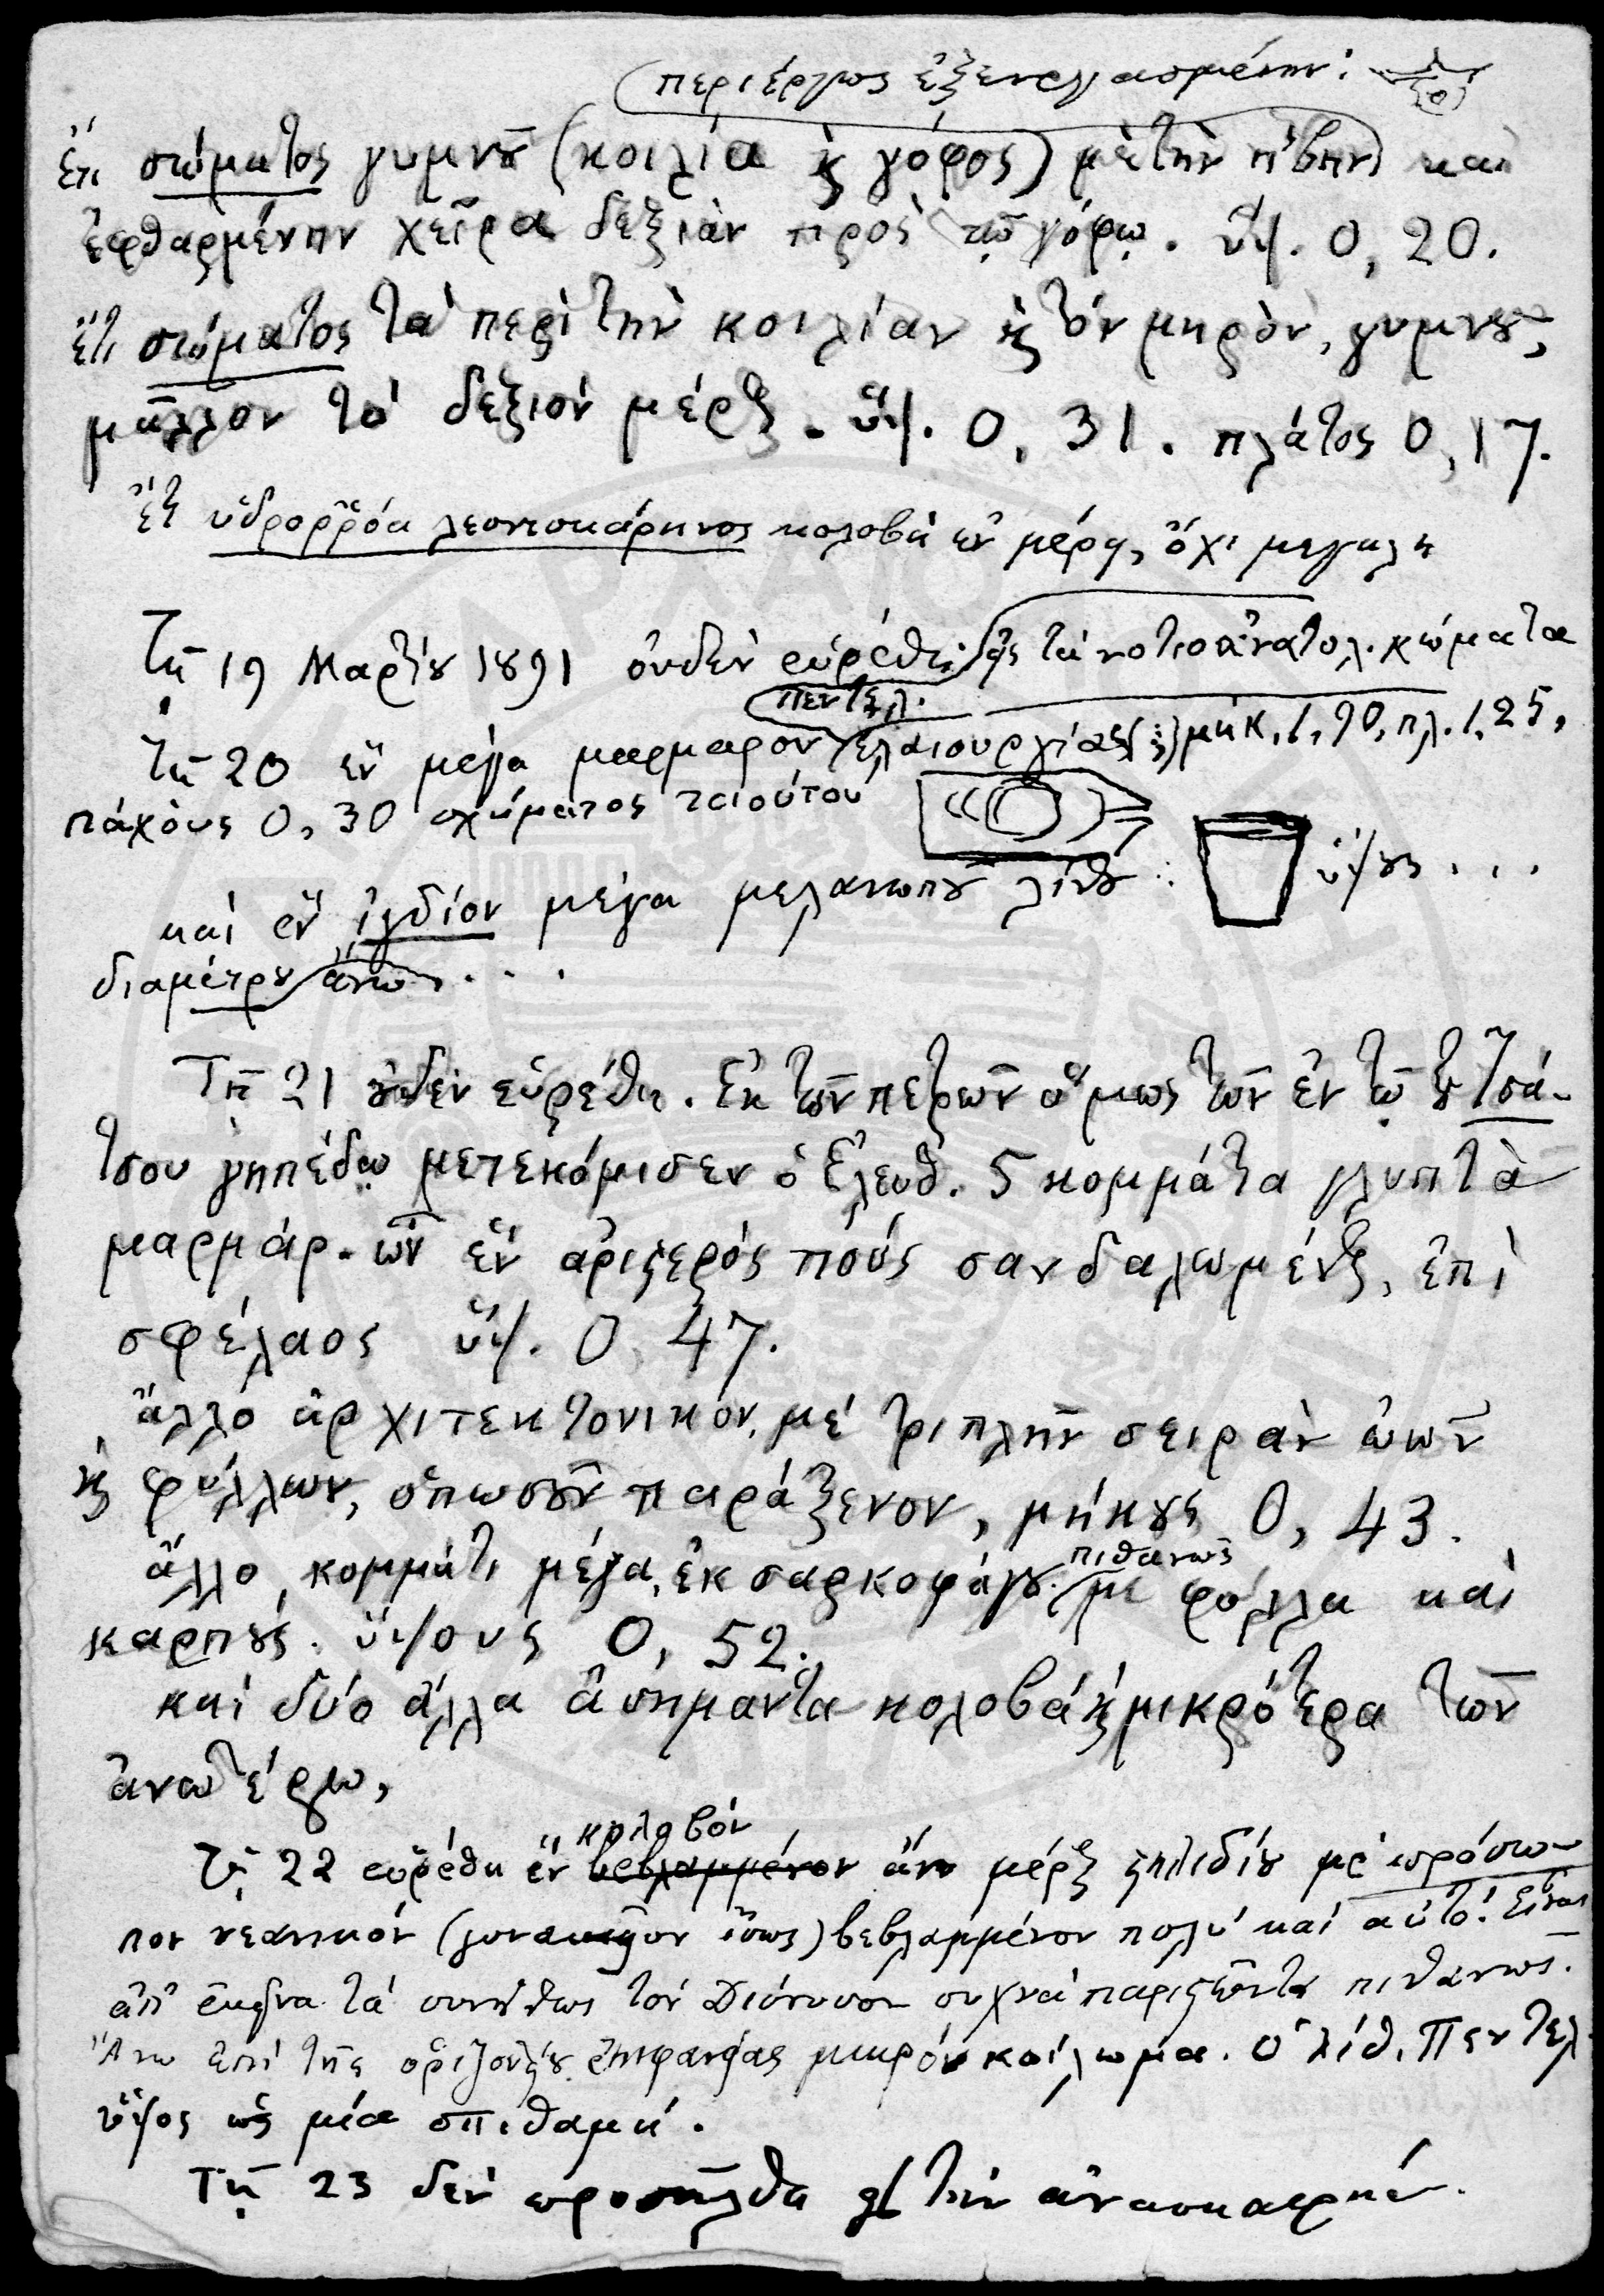 περιέργως ἐξειργασμένην:
ἔτι σώματος γυμνȣ͂ (κοιλία ϗ γόφος) μὲ τὴν ἥβην καὶ
ἐφθαρμένην χεῖρα δεξιὰν πρὸς τῷ γόφῳ. ὕψ. 0,20.
ἔτι σώματος τὰ περὶ τὴν κοιλίαν ϗ τὸν μηρὸν, γυμνȣ͂,
μᾶλλον τὸ δεξιὸν μέρος. ὕψ. 0,31. πλάτος 0,17.
ἔτι ὑδρορρόα λεοντοκάρηνος κολοβὴ ἐν μέρει, ὄχι μεγάλη
Τῇ 19 Μαρτίȣ 1891 οὐδὲν εὑρέθη εἰς τὰ νοτιοἀνατολ. χώματα
πεντελ.
Τῇ 20 ἓν μέγα μάρμαρον ἐλαιουργίας (;) μήκ. 1,90, πλ. 1,25,
πάχους 0,30 σχήματος τοιούτου
καὶ ἓν ἰγδίον μέγα μελανωπȣ͂ λίθȣ: ὕψȣς ...
διαμέτρȣ ἄνω ...
Τῇ 21 ȣ̓δὲν εὑρέθη. Ἐκ τῶν πετρῶν ὅμως τῶν ἐν τῷ τȣ͂ Τσά-
τσου γηπέδῳ μετεκόμισεν ὁ Ἐλευθ. 5 κομμάτια γλυπτὰ
μαρμάρ. ὧν ἓν ἀριστερὸς ποὺς σανδαλωμένος, ἐπὶ
σφέλαος ὕψ. 0,47.
ἄλλο ἀρχιτεκτονικὸν, μὲ τριπλῆν σειρὰν ὠῶν
ϗ φύλλων, ὁπωσȣ͂ν παράξενον, μήκȣς 0,43.
πιθανῶς
ἄλλο κομμάτι μέγα, ἐκ σαρκοφάγȣ, μὲ φύλλα καὶ
καρπȣ́ς. ὕψους 0,52.
καὶ δύο ἄλλα ἀσήμαντα κολοβὰ ϗ μικρότερα τῶν
ἀνωτέρω,
κολοβὸν
Τῇ 22 εὑρέθη ἓν βεβλαμμένον ἄνω μέρος στηλιδίȣ μὲ πρόσω-
πον νεανικόν (γυναικεῖον ἴσως) βεβλαμμένον πολὺ καὶ αὐτό. Εἶναι
ἀπ' ἐκεῖνα τὰ συνήθως τὸν Διόνυσον συχνὰ παριστῶντα πιθανῶς.
Ἄνω ἐπὶ τῆς ὁριζοντίȣ ἐπιφανείας μικρὸν κοίλωμα. ὁ λίθ. Πεντελ.
ὕψος ὡς μία σπιθαμή.
Τῇ 23 δὲν προσῆλθα εἰς τὴν ἀνασκαφήν.